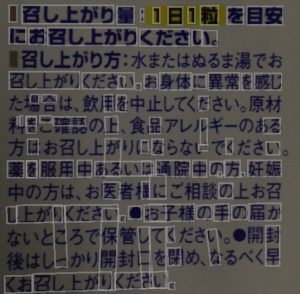 召し上がり量:1日1粒を目安
にお召し上がりください。
召し上がり方:水またはぬるま湯でお
召し上がりください。お身体に異常を感じ
た場合は、飲用を中止してください。原材
料をご確認の上、食品アレルギーのある
方はお召し上がりにならないでください。
薬を服用中あるいは通院中の方、妊娠
中の方は、お医者様にご相談の上お召
し上がりください。●お子様の手の届か
ないところで保管してください。●開封
後はしっかり開封口を閉め、なるべく早
くお召し上がりください。